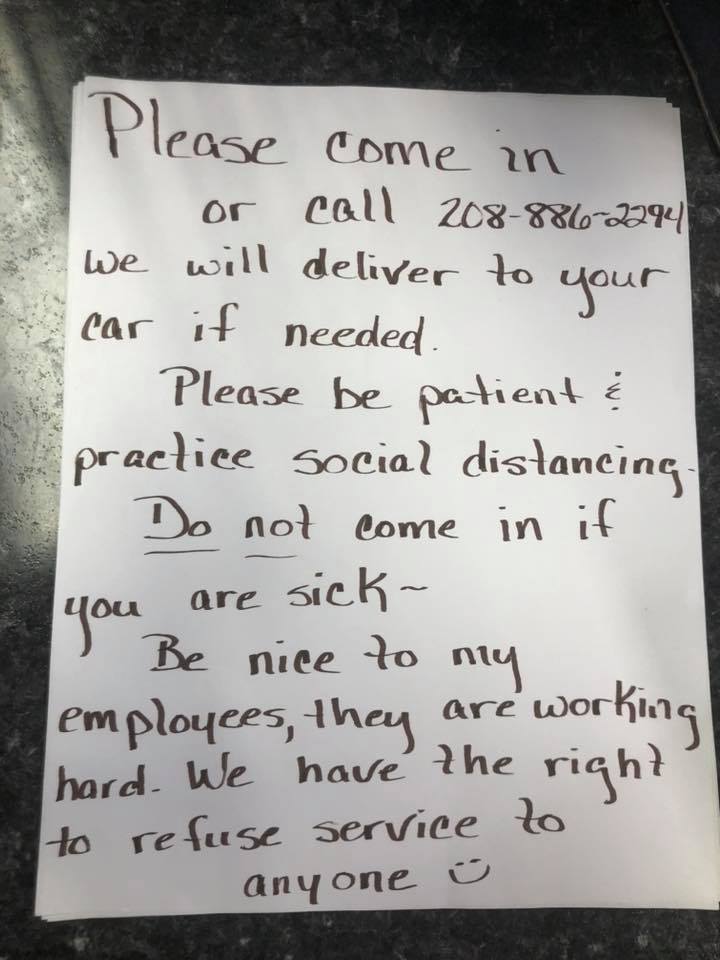 Please come in
or call 208-886-2294
We will deliver to your
car if needed.
Please be patient &
practice social distancing.
Do not come in if
you are sick~
Be nice to my
employees, they are working
hard. We have the right
to refuse service to
anyone :)